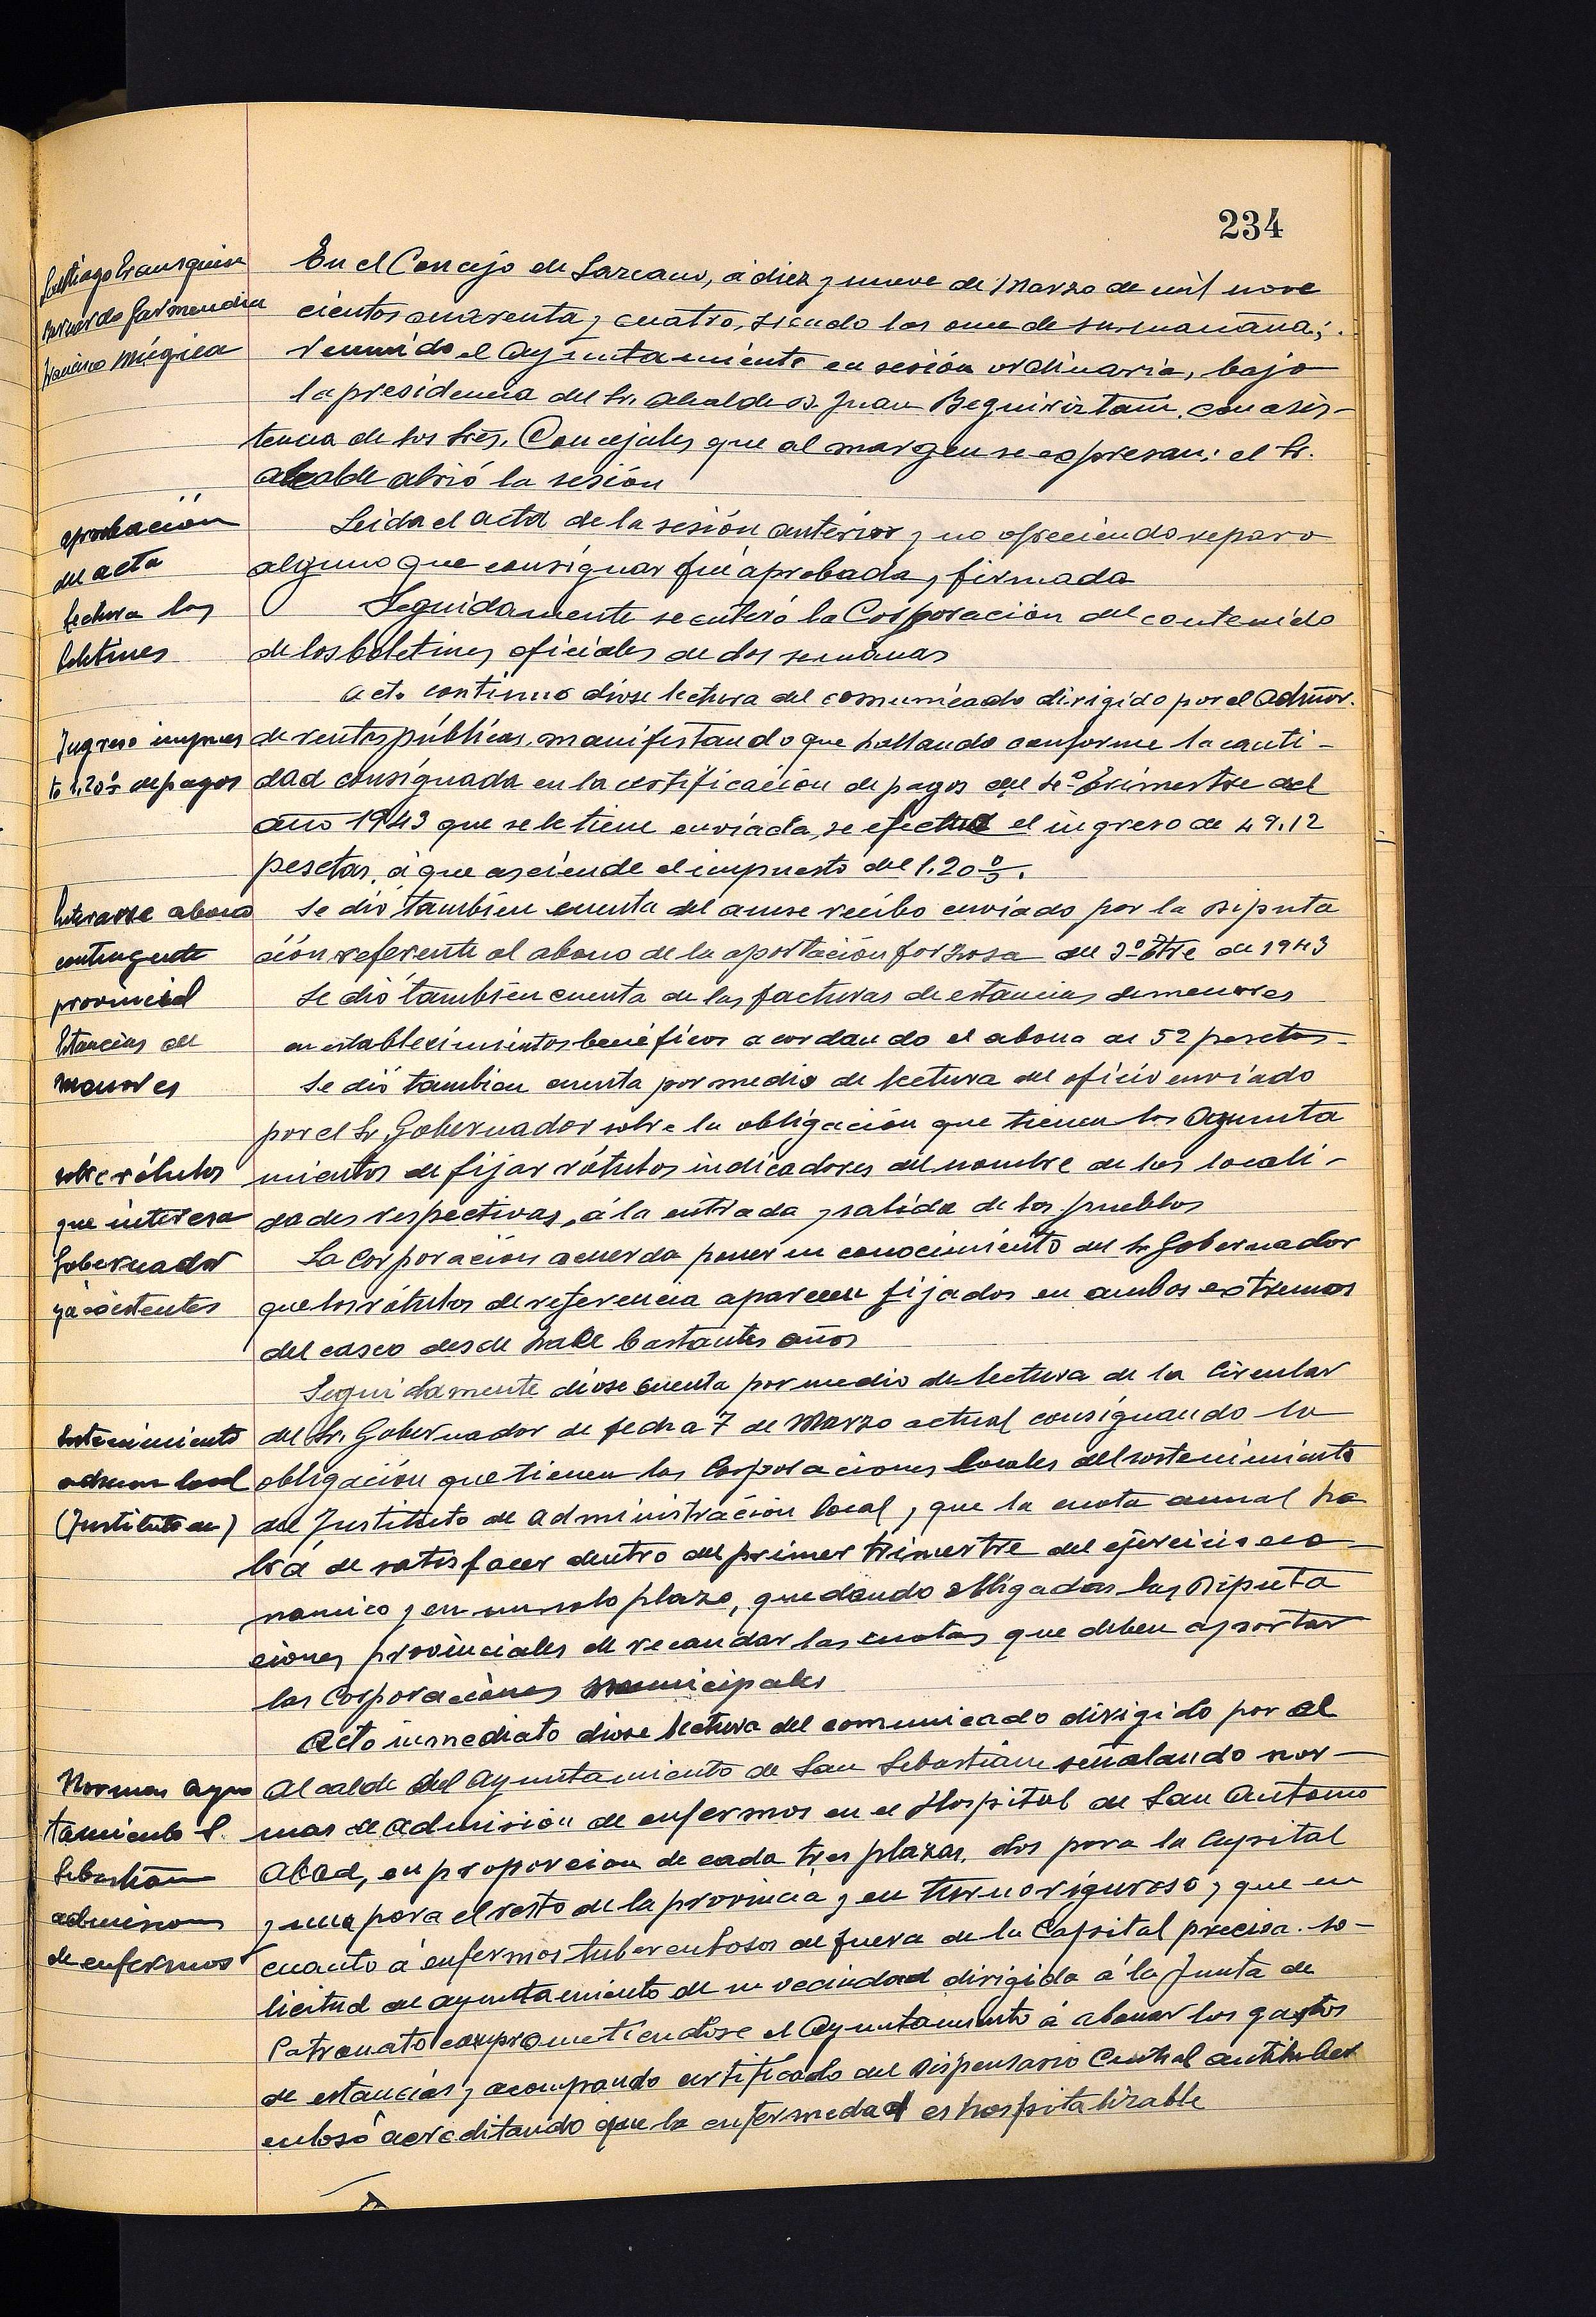 234
Santiago Irausquin
Bernardo Garmendia
Francisco Múgica
En el Concejo de Lazcano, á diez y nueve de Marzo de mil nove
cientos cuarenta y cuatro, siendo las once de su mañana;
reunido el Ayuntamiento en sesión ordinaria, bajo
la presidencia del Sr. Alcalde D. Juan Beguiristain, con asis-
tencia de los Sres. Concejales que al margen se expresan; el Sr.
alcalde abrió la sesión
aprobación
del acta
Leida el acta de la sesión anterior y no ofreciendo reparo
alguno que consignar fué aprobada y firmada
lectura los
boletines
Seguidamente se enteró la Corporación del contenido
de los boletines oficiales de dos semanas
Ingreso impues
to 1,20% de pagos
acto continuo diose lectura del comunicado dirigido por el Admor.
de rentas públicas, manifestando que hallando conforme la canti-
dad consignada en la certificación de pagos del 4º trimestre del
año 1943 que se le tiene enviada, se efectue el ingreso de 49,12
pesetas, á que asciende el impuesto del 1.20%.
Enterarse abono
contingente
provincial
Se dió también cuenta del acuse recibo enviado por la Diputa
ción referente al abono de la aportación forzosa del 3º Tre de 1943
Estancias de
menores
Se dió también cuenta de las facturas de estancias de menores
en establecimientos benéficos acordando el abono de 52 pesetas-
sobre rótulos
que interesa
Gobernador
ya existentes
Se dió tambien cuenta por medio de lectura del oficio enviado
por el Sr. Gobernador sobre la obligación que tienen los Ayunta
mientos de fijar rótulos indicadores del nombre de las locali-
dades respectivas, á la entrada y salida de los pueblos
La Corporación acuerda poner en conocimiento del Sr. Gobernador
que los rótulos de referencia aparecen fijados en ambos extremos
del casco desde hace bastantes años
Sostenimiento
admon local
(Instituto de)
Seguidamente diose cuenta por medio de lectura de la Circular
del Sr. Gobernador de fecha 7 de Marzo actual consignando la
obligación que tienen las Corporaciones locales del sostenimiento
del Instituto de administración local, que la cuota anual ha
brá de satisfacer dentro del primer trimestre del ejercicio eco-
nomico y en un solo plazo, quedando obligadas las Diputa
ciones provinciales de recaudar las cuotas que deben aportar
las Corporaciones municipales
Normas Ayun
tamiento S.
Sebastián
admision
de enfermos
Acto inmediato diose lectura del comunicado dirigido por el
Alcalde del Ayuntamiento de San Sebastián señalando nor-
mas de admisión de enfermos en el Hospital de San Antonio
Abad, en proporcion de cada tres plazas, dos para la Capital
y una para el resto de la provincia y en turno riguroso y que en
cuanto á enfermos tuberculosos de fuera de la Capital precisa so-
licitud del ayuntamiento de su vecindad dirigida á la Junta de
Patronato comprometiendose el Ayuntamiento á abonar los gastos
de estancias y acompando certificado del Dispensario Central antituber
culoso acreditando que la enfermedad es hospitalizable